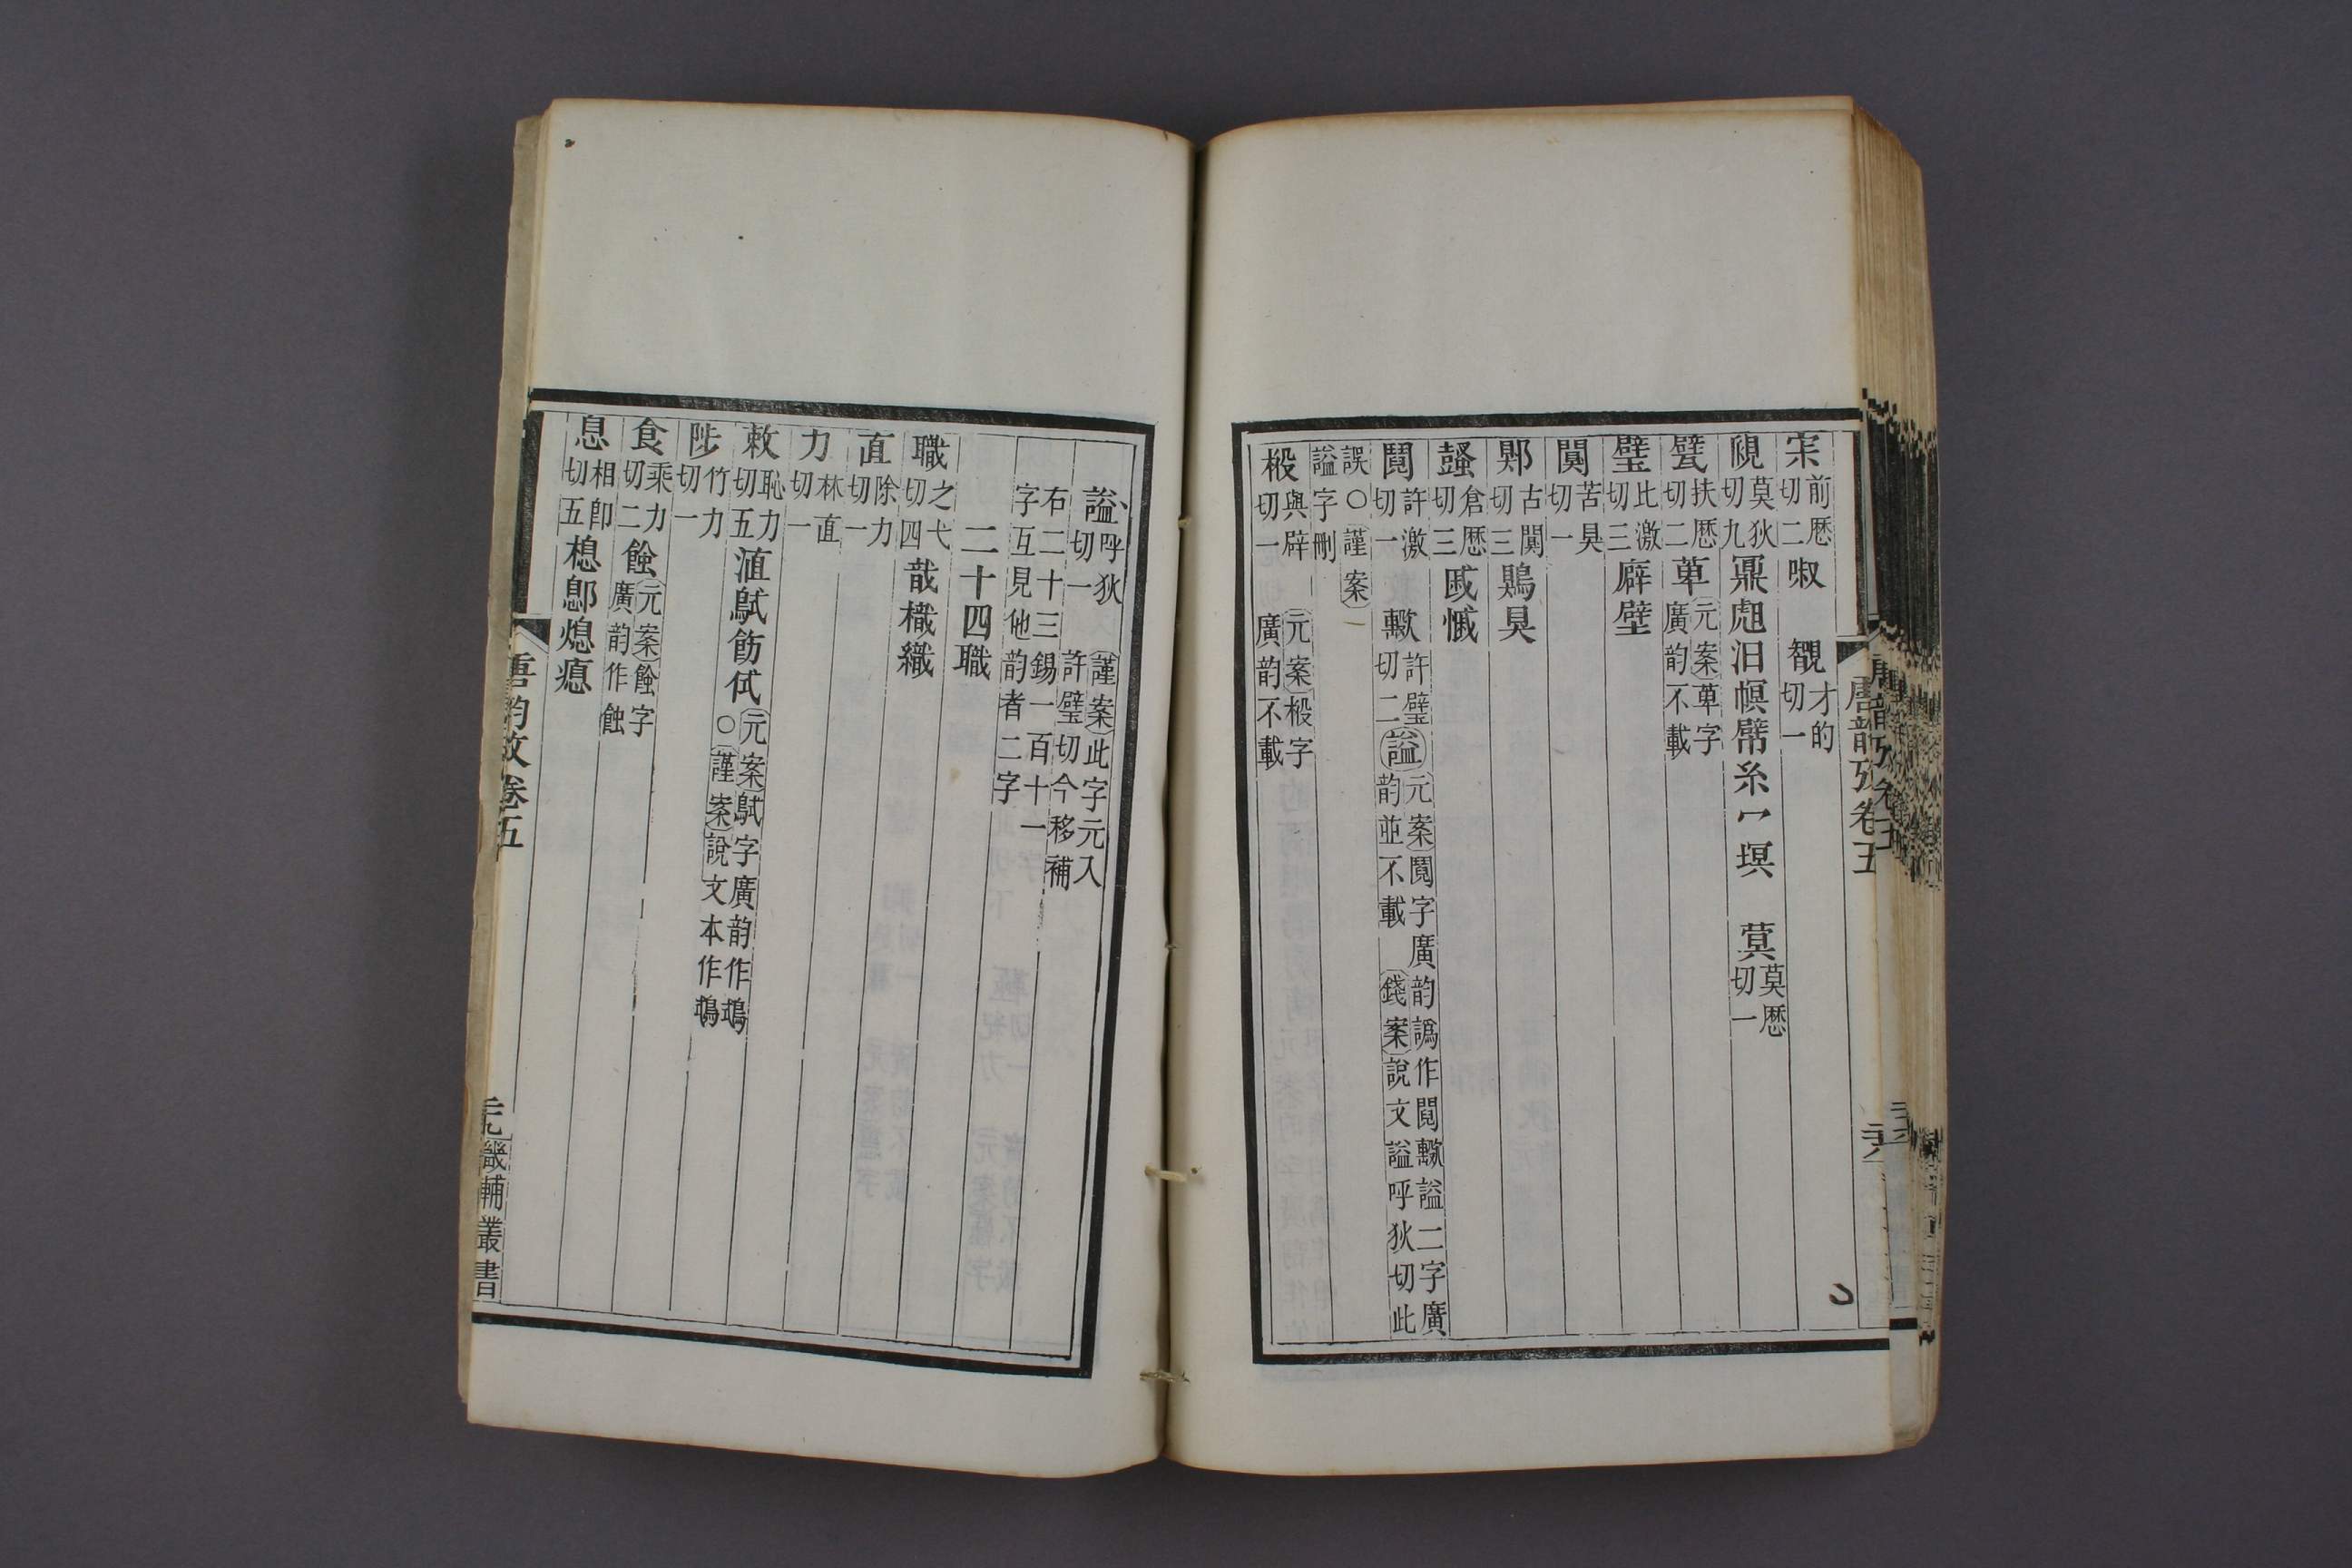 宋前歷切二㗱　覿才的切一
覛莫狄切九鼏䖑汨幎幦糸冖塓　蓂莫歷切一
甓扶歷切二萆元案萆字廣韵不載
璧比激切三廦壁
闃苦狊切一
郹古闃切三鶪狊
鏚倉歷切三戚慽
䦧許激切一　許璧切二謚元案䦧字廣韵譌作閱二字廣韵並不載　錢案說文謚呼狄切此
誤○謹案謚字刪
椴與辟切一　元案椴字廣韵不載
唐韵攷卷五
謚呼狄切一　謹案此字元入許璧切今移補
右二十三錫一百十一字互見他韵者二字
二十四職
職之弋切四戠樴織
直除力切一
力林直切一
敕恥力切五淔鷘飭侙元案鷘字廣韵作鶒○謹案說文本作鶒
陟竹力切一
食乘力切二䭒元案䭒字廣韵作蝕
息相卽切五樬鄎熄瘜
唐韵攷卷五
畿輔叢書